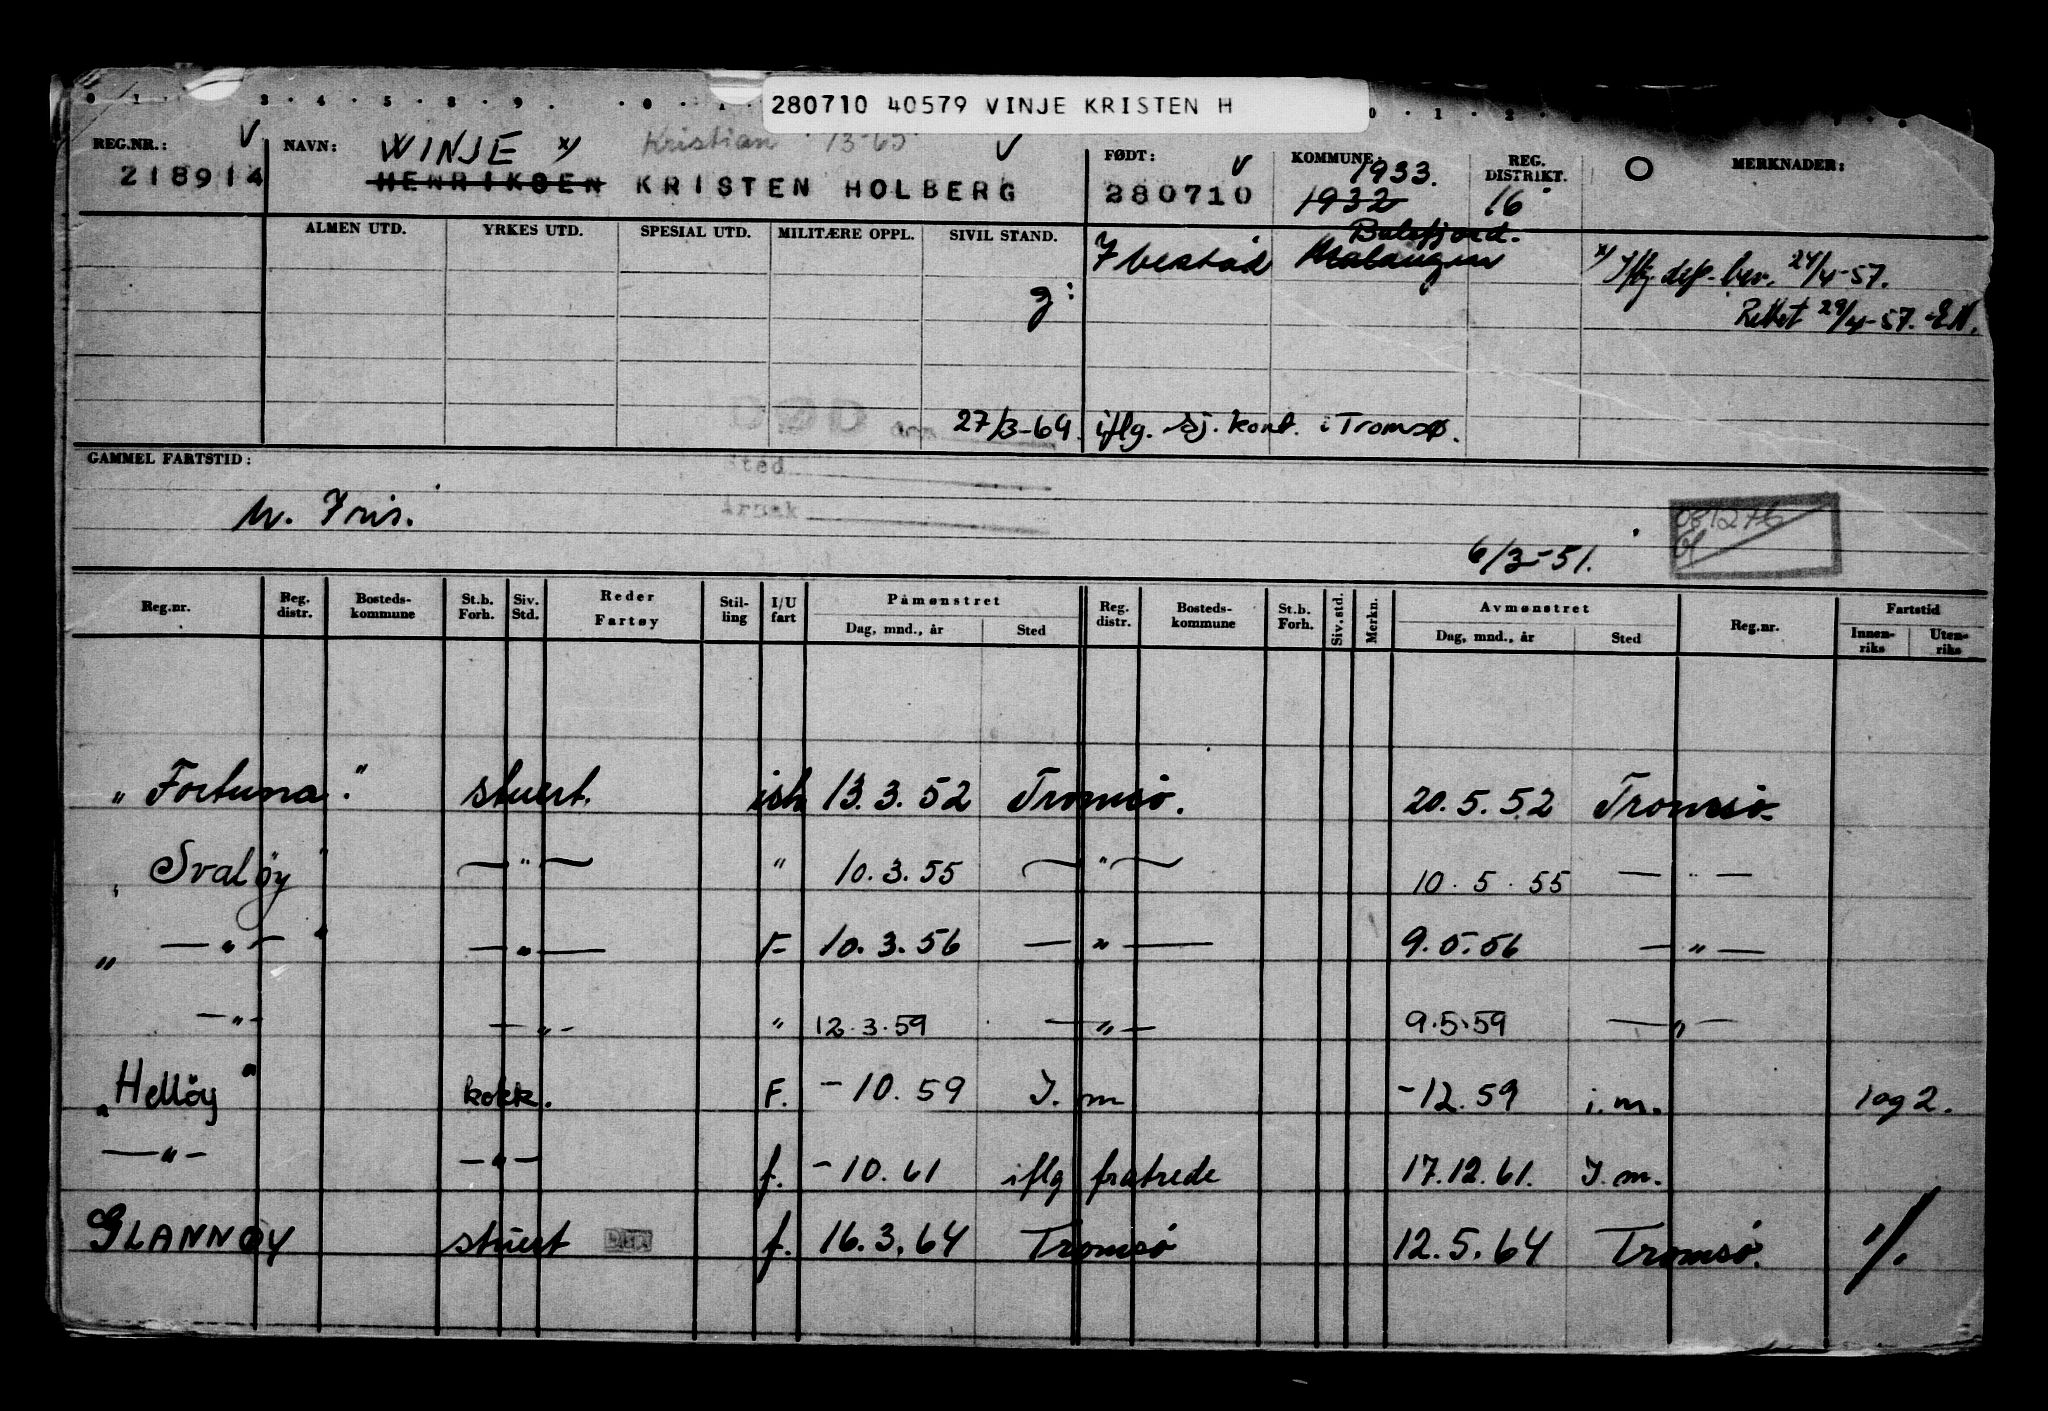 280710 40579 VINJE KRISTEN H
REG.NR.: V NAVN: WINJE x) Kristian 13-65 V FØDT: V KOMMUNE: 1933. REG. DISTRIKT. O MERKNADER:
218914 HENRIKSEN KRISTEN HOLBERG 280710 1932 16
ALMEN UTD. YRKES UTD. SPESIAL UTD. MILITÆRE OPPL. SIVIL STAND. Balsfjord.
Ibestad Malangen x) Iflg. dep. bev. 24/4-57.
g: Rettet 29/4-57. EN.
DØD 27/3-69. iflg. sj. kont. i Tromsø.
GAMMEL FARTSTID: Sted
Årsak
081276
6/3-51.
Reg.nr. Reg. distr. Bosteds-kommune St.b. Forh. Siv. Std. Reder Fartøy Stil-ling I/U fart Påmønstret Reg. distr. Bosteds-kommune St.b. Forh. Siv. std. Merkn. Avmønstret Reg.nr. Fartstid
Dag, mnd., år Sted Dag, mnd., år Sted Innen-riks Uten-riks
"Fortuna." stuert. ish 13.3.52 Tromsø. 20.5.52 Tromsø-
"Svaløy" —"— " 10.3.55 —"— 10.5.55 —"—
"—"—" —"— F 10.3.56 —"— 9.5.56 —"—
—"— —"— " 12.3.59 —"— 9.5.59 —"—
"Helløy" kokk. F. -10.59 I.m -12.59 i.m. 1 og 2.
—"— —"— f. -10.61 iflg fratrede 17.12.61. I.m.
GLANNØY stuert f. 16.3.64 Tromsø 12.5.64 Tromsø. 1/.